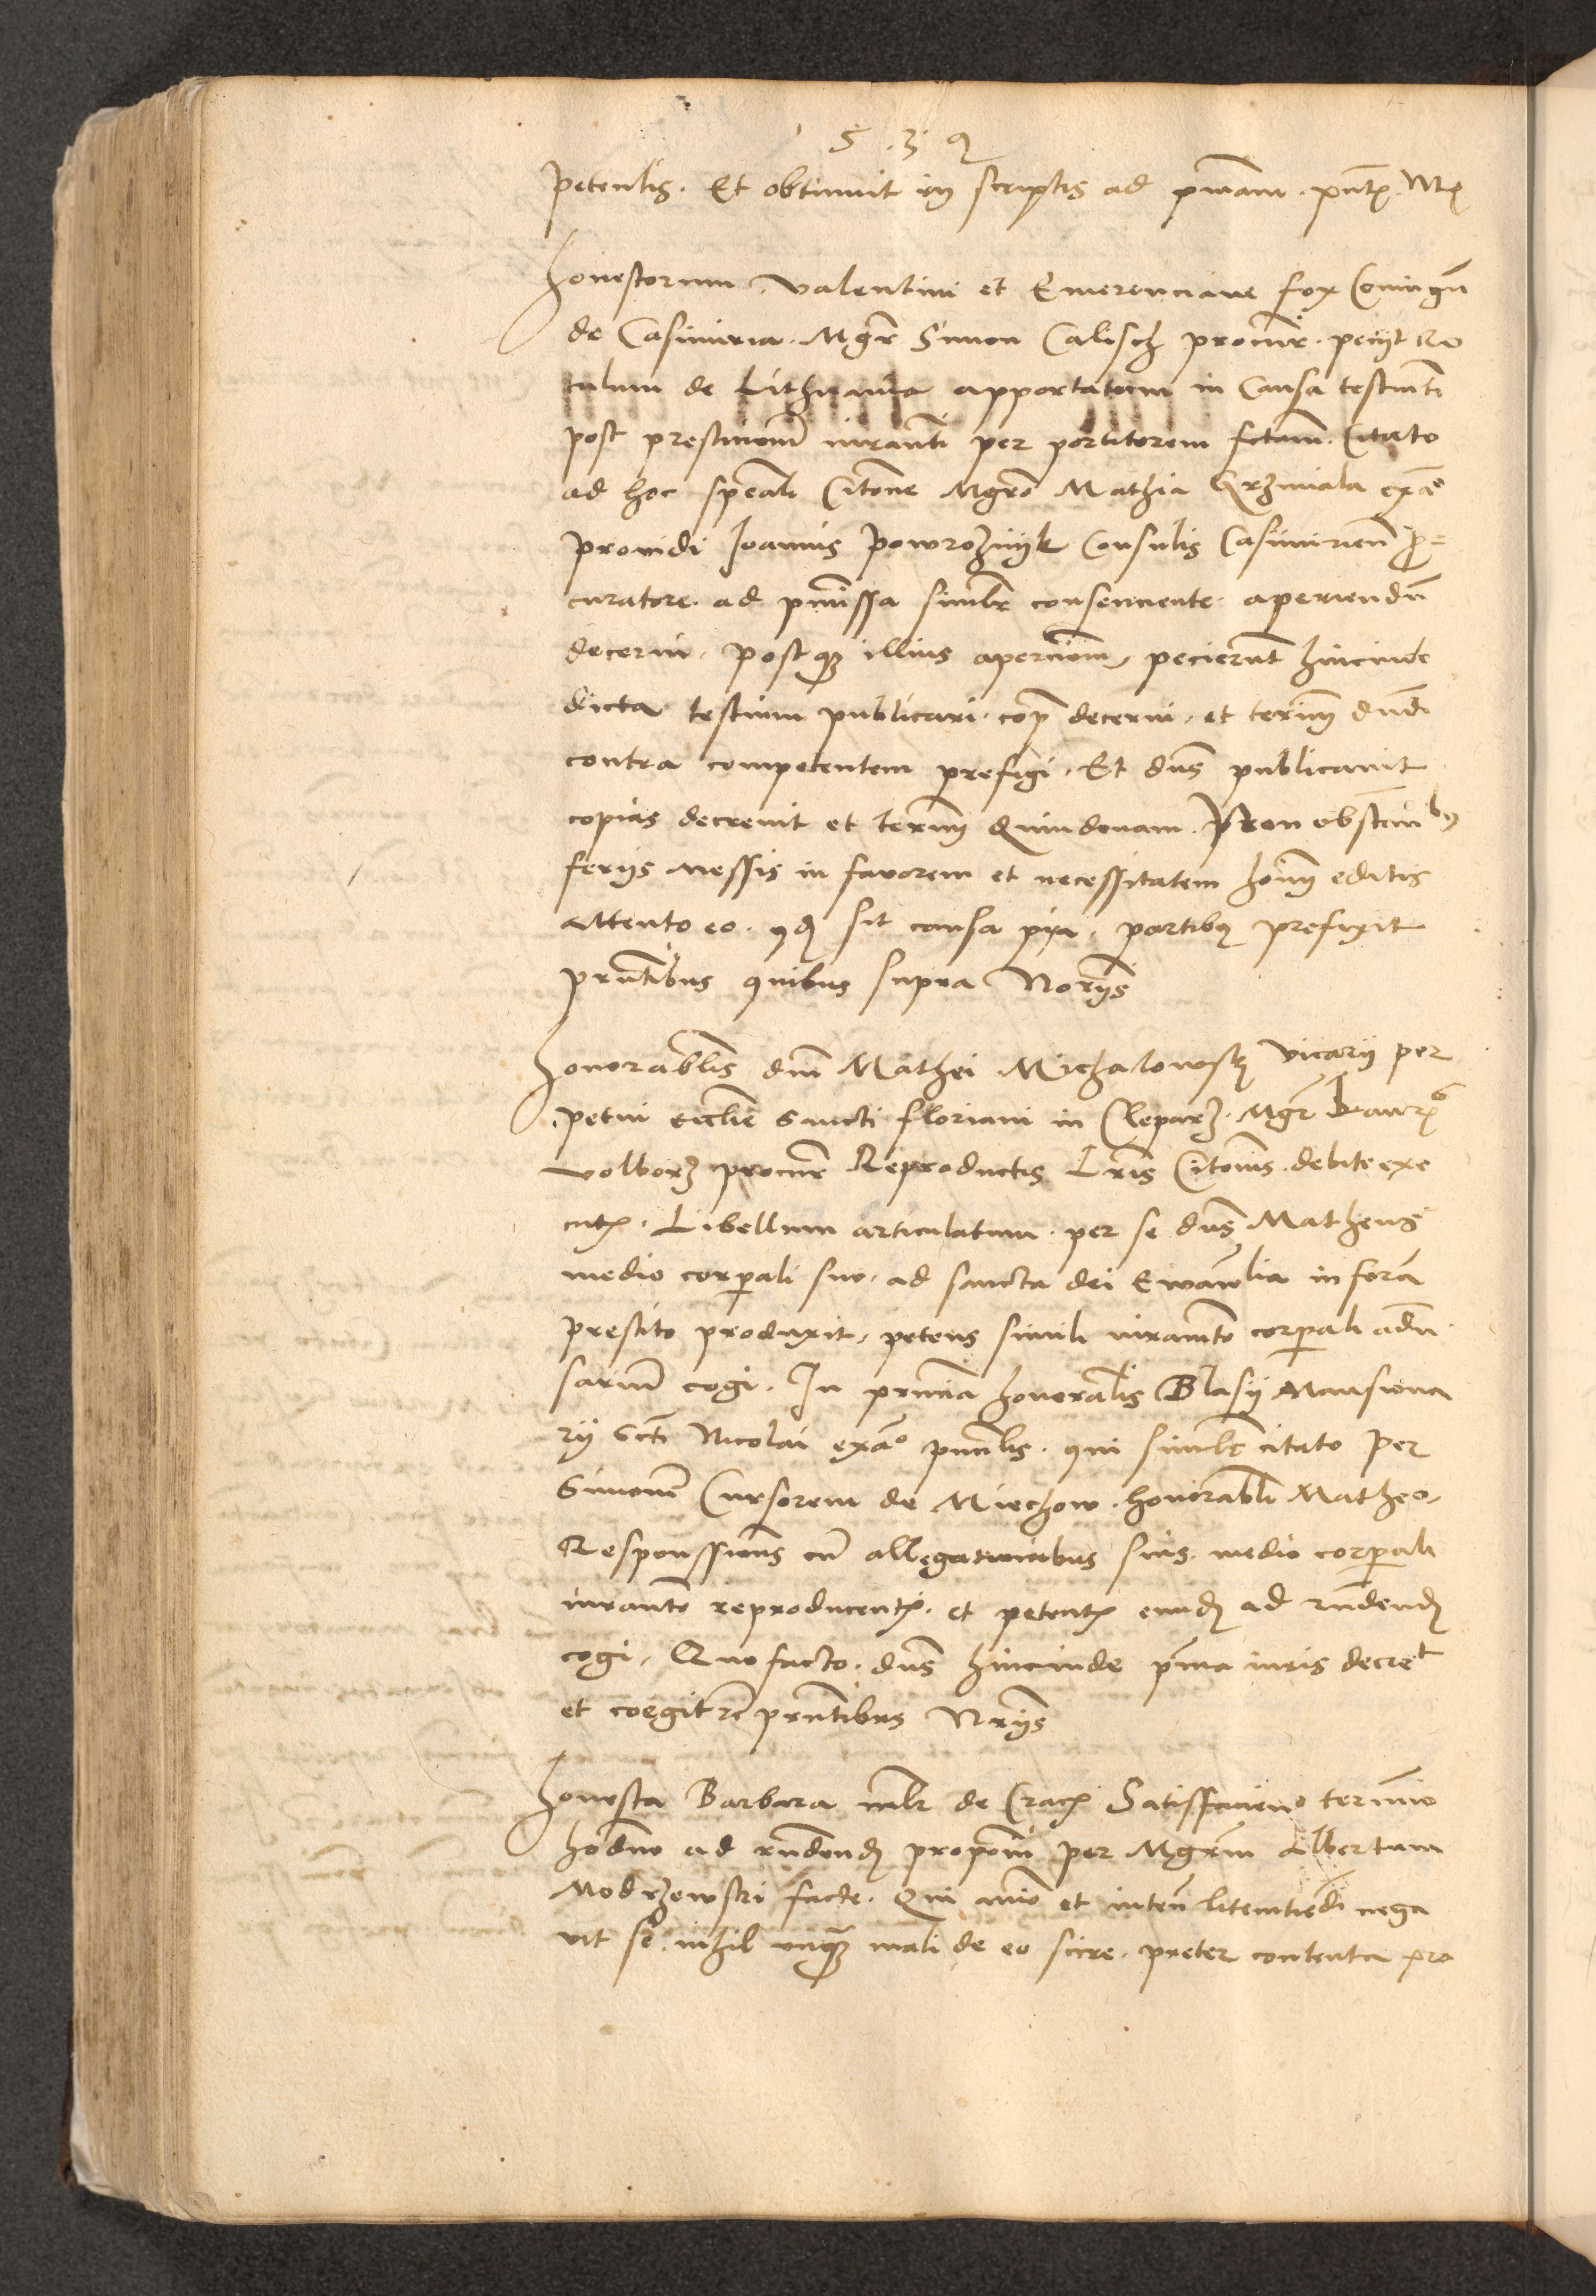 5 3 9
petentis. Et obtinuit in scriptis ad pmam. pntz Mz
Honestorum Valentini et Emerenciane fox Coniugu
de Casimiria. Mgr Simon Calisch procur. peciit Ro
tulum de Lithuania apportatum in causa testimti
post prestiuonem iuranti per portitorem fctam. Citato
ad hoc speali Citone Mgro Mathia Grzimala exao
prouidi Joannis Powroznijk Consulis Casimirien p=
curatore. ad pmissa simlr consenciente aperiendu
decerni. post qz illius apercionem, pecierunt hincinde
dicta testium publicari. cop decerni, et terinu dndi
contra competentem prefigi. Et dns publicauit
copias decreuit et terinu Quindenam. Non obstanbus
ferijs Messis in fauorem et necessitatem hoinu editis
attento eo. qd sit causa pia. partibus prefixit
pntibus quibus supra Norijs
Honorablis dni Mathei Michalowsky vicarij per
petui ecclie sancti Floriani in Cleparz. Mgr Laurs
Volborz procur Reproductis Lris Citonis debite exe
cutz. Libellum articulatum per se dns Matheus
medio corporali suo. ad sancta dei Ewanlia in forma
prestito produxit, petens simili iuramto corporali adu
sarium cogi. In pncia honorablis Blasij Mansiona
rij Scti Nicolai exao pncialis. qui simlr citato per
Simonem Cursorem de Miechow. honorabli Matheo.
Responssiones cu allegationibus suis. medio corporali
iuranto reproducentz. et petentz eundz ad rndendz
cogi. Quo facto. dns hincinde pma iuris decret
et coegit rc pntibus Nrijs
Honesta Barbara mlr de Crac Satisfaciendo terimio
hodno ad rndendz proponi per Mgrm Albertum
Modrzewski facte. Qui animo et inten litemtiedi nega
uit se nihil unqz mali de eo scire. preter contenta pro